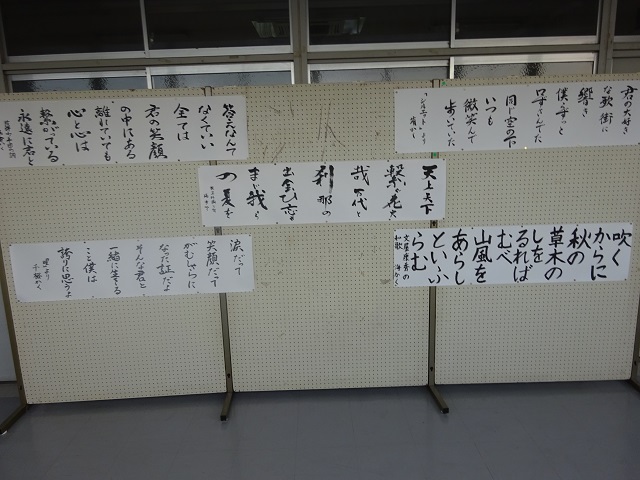 君の大好き
な歌 街に
響き
僕らずっと
口ずさんでた
同じ空の下
いつも
微笑んで
歩いていた
答えなんて
なくていい
全ては
君の笑顔
の中にある
離れていても
心と心は
繋がっている
永遠に君と
天上天下
繋ぐ花火
哉 万代と
刹那の
出会ひ忘る
まじ我ら
の夏を
吹く
からに
秋の
草木の
しを
るれば
むべ
山風を
あらし
といふ
らむ
文屋康秀の
和歌
涙だって
笑顔だって
がむしゃらに
なった証だよ
そんな君と
一緒に生きる
こと僕は
誇りに思うよ